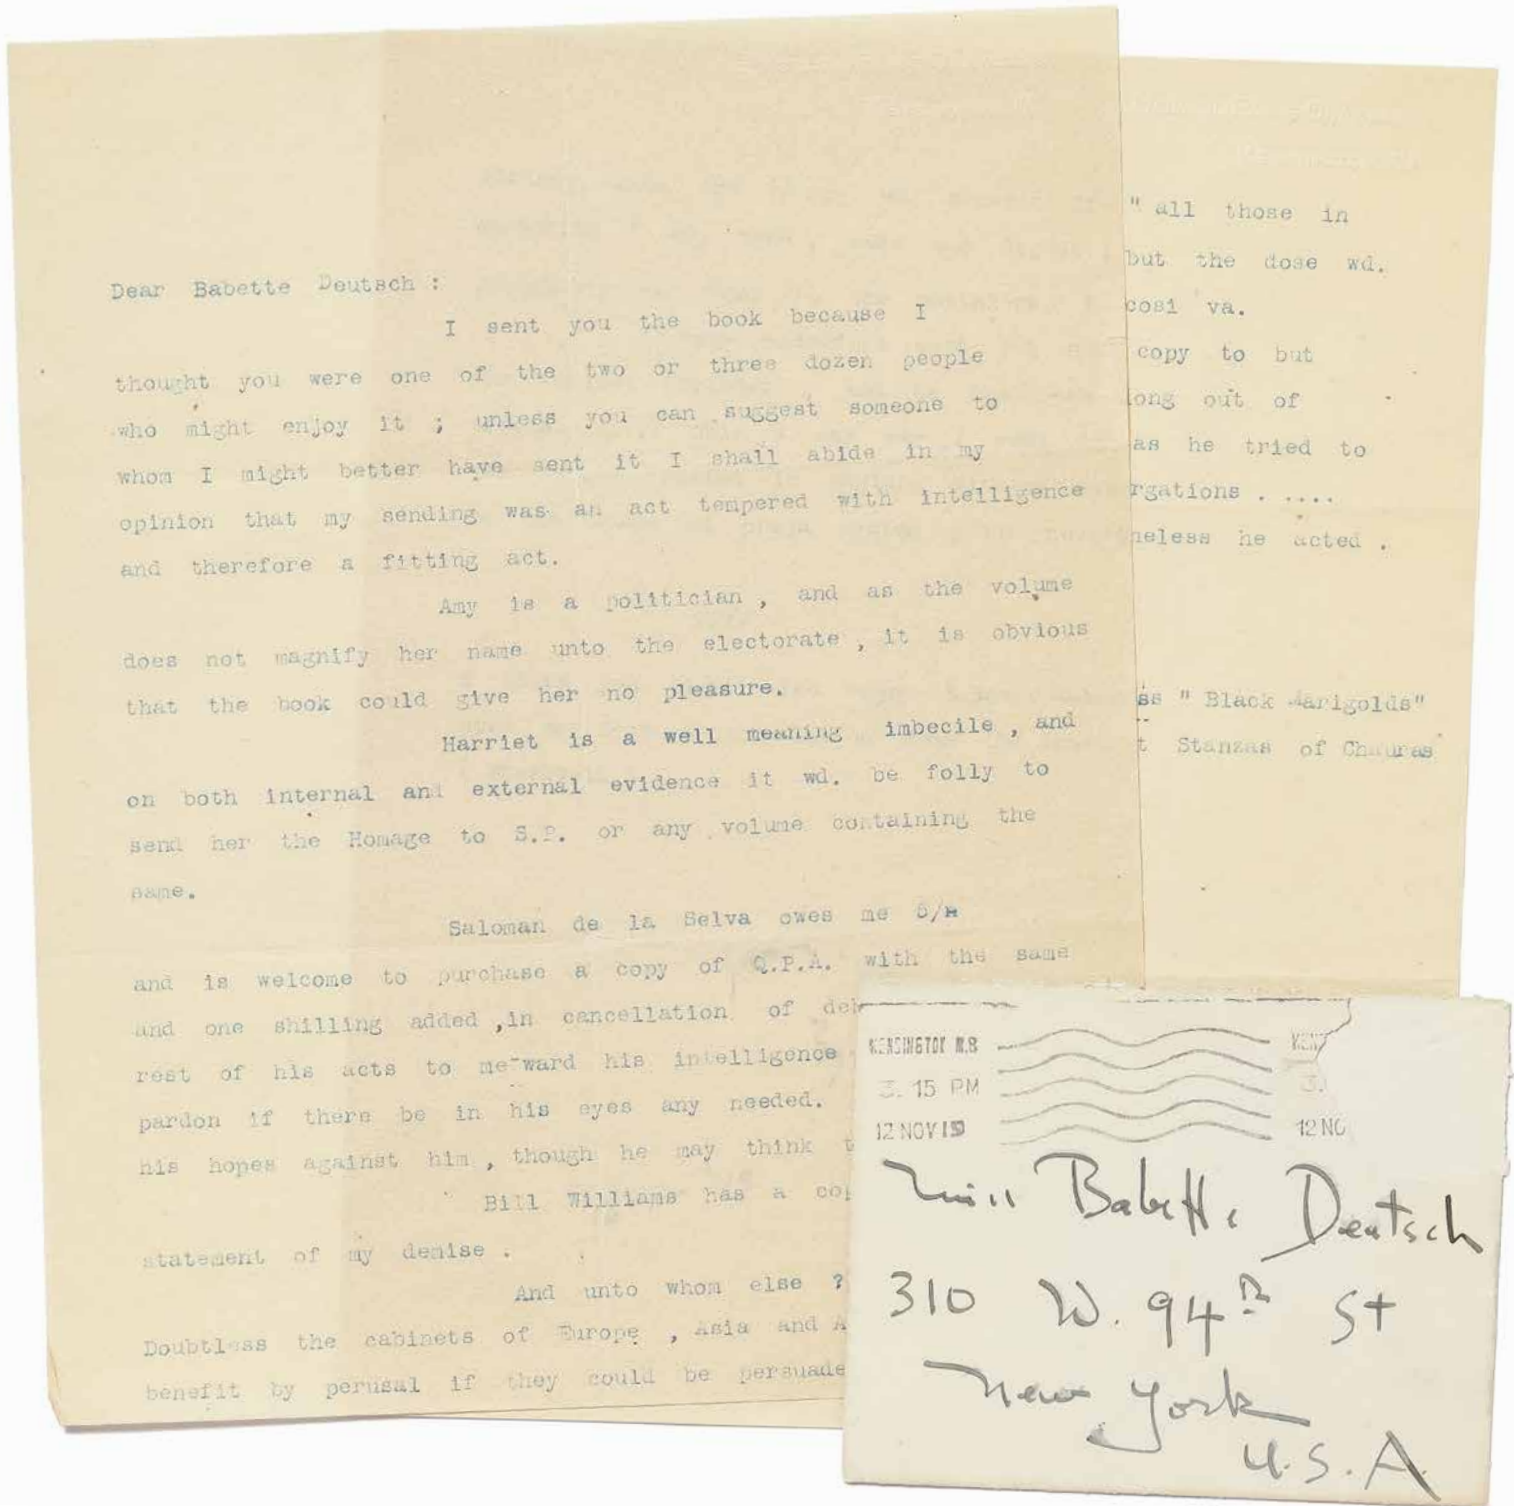 Dear Babette Deutsch :
I sent you the book because I
thought you were one of the two or three dozen people
who might enjoy it ; unless you can suggest someone to
whom I might better have sent it I shall abide in my
opinion that my sending was an act tempered with intelligence
and therefore a fitting act.
Amy is a politician , and as the volume
does not magnify her name unto the electorate , it is obvious
that the book could give her no pleasure.
Harriet is a well meaning imbecile , and
on both internal and external evidence it wd. be folly to
send her the Homage to S.P. or any volume containing the
same.
Saloman de la Selva owes me
and is welcome to purchase a copy of Q.P.A. with the same
and one shilling added ,in cancellation of
rest of his acts to me-ward his intelligence
pardon if there be in his eyes any needed.
his hopes against him , though he may think
Bill Williams has a
statement of my demise .
And unto whom else ?
Doubtless the cabinets of Europe , Asia and A
benefit by perusal if they could be persuade
" all those in
but the dose wd.
cosi va.
copy to but
long out of
as he tried to
rgations . ....
heless he acted .
ss " Black Marigolds"
t Stanzas of Chauras
KENSINGTON W.8
3. 15 PM
12 NOV 19
KEN
3.
12 NO
Miss Babette Deutsch
310 W. 94th St
New York
U.S.A.